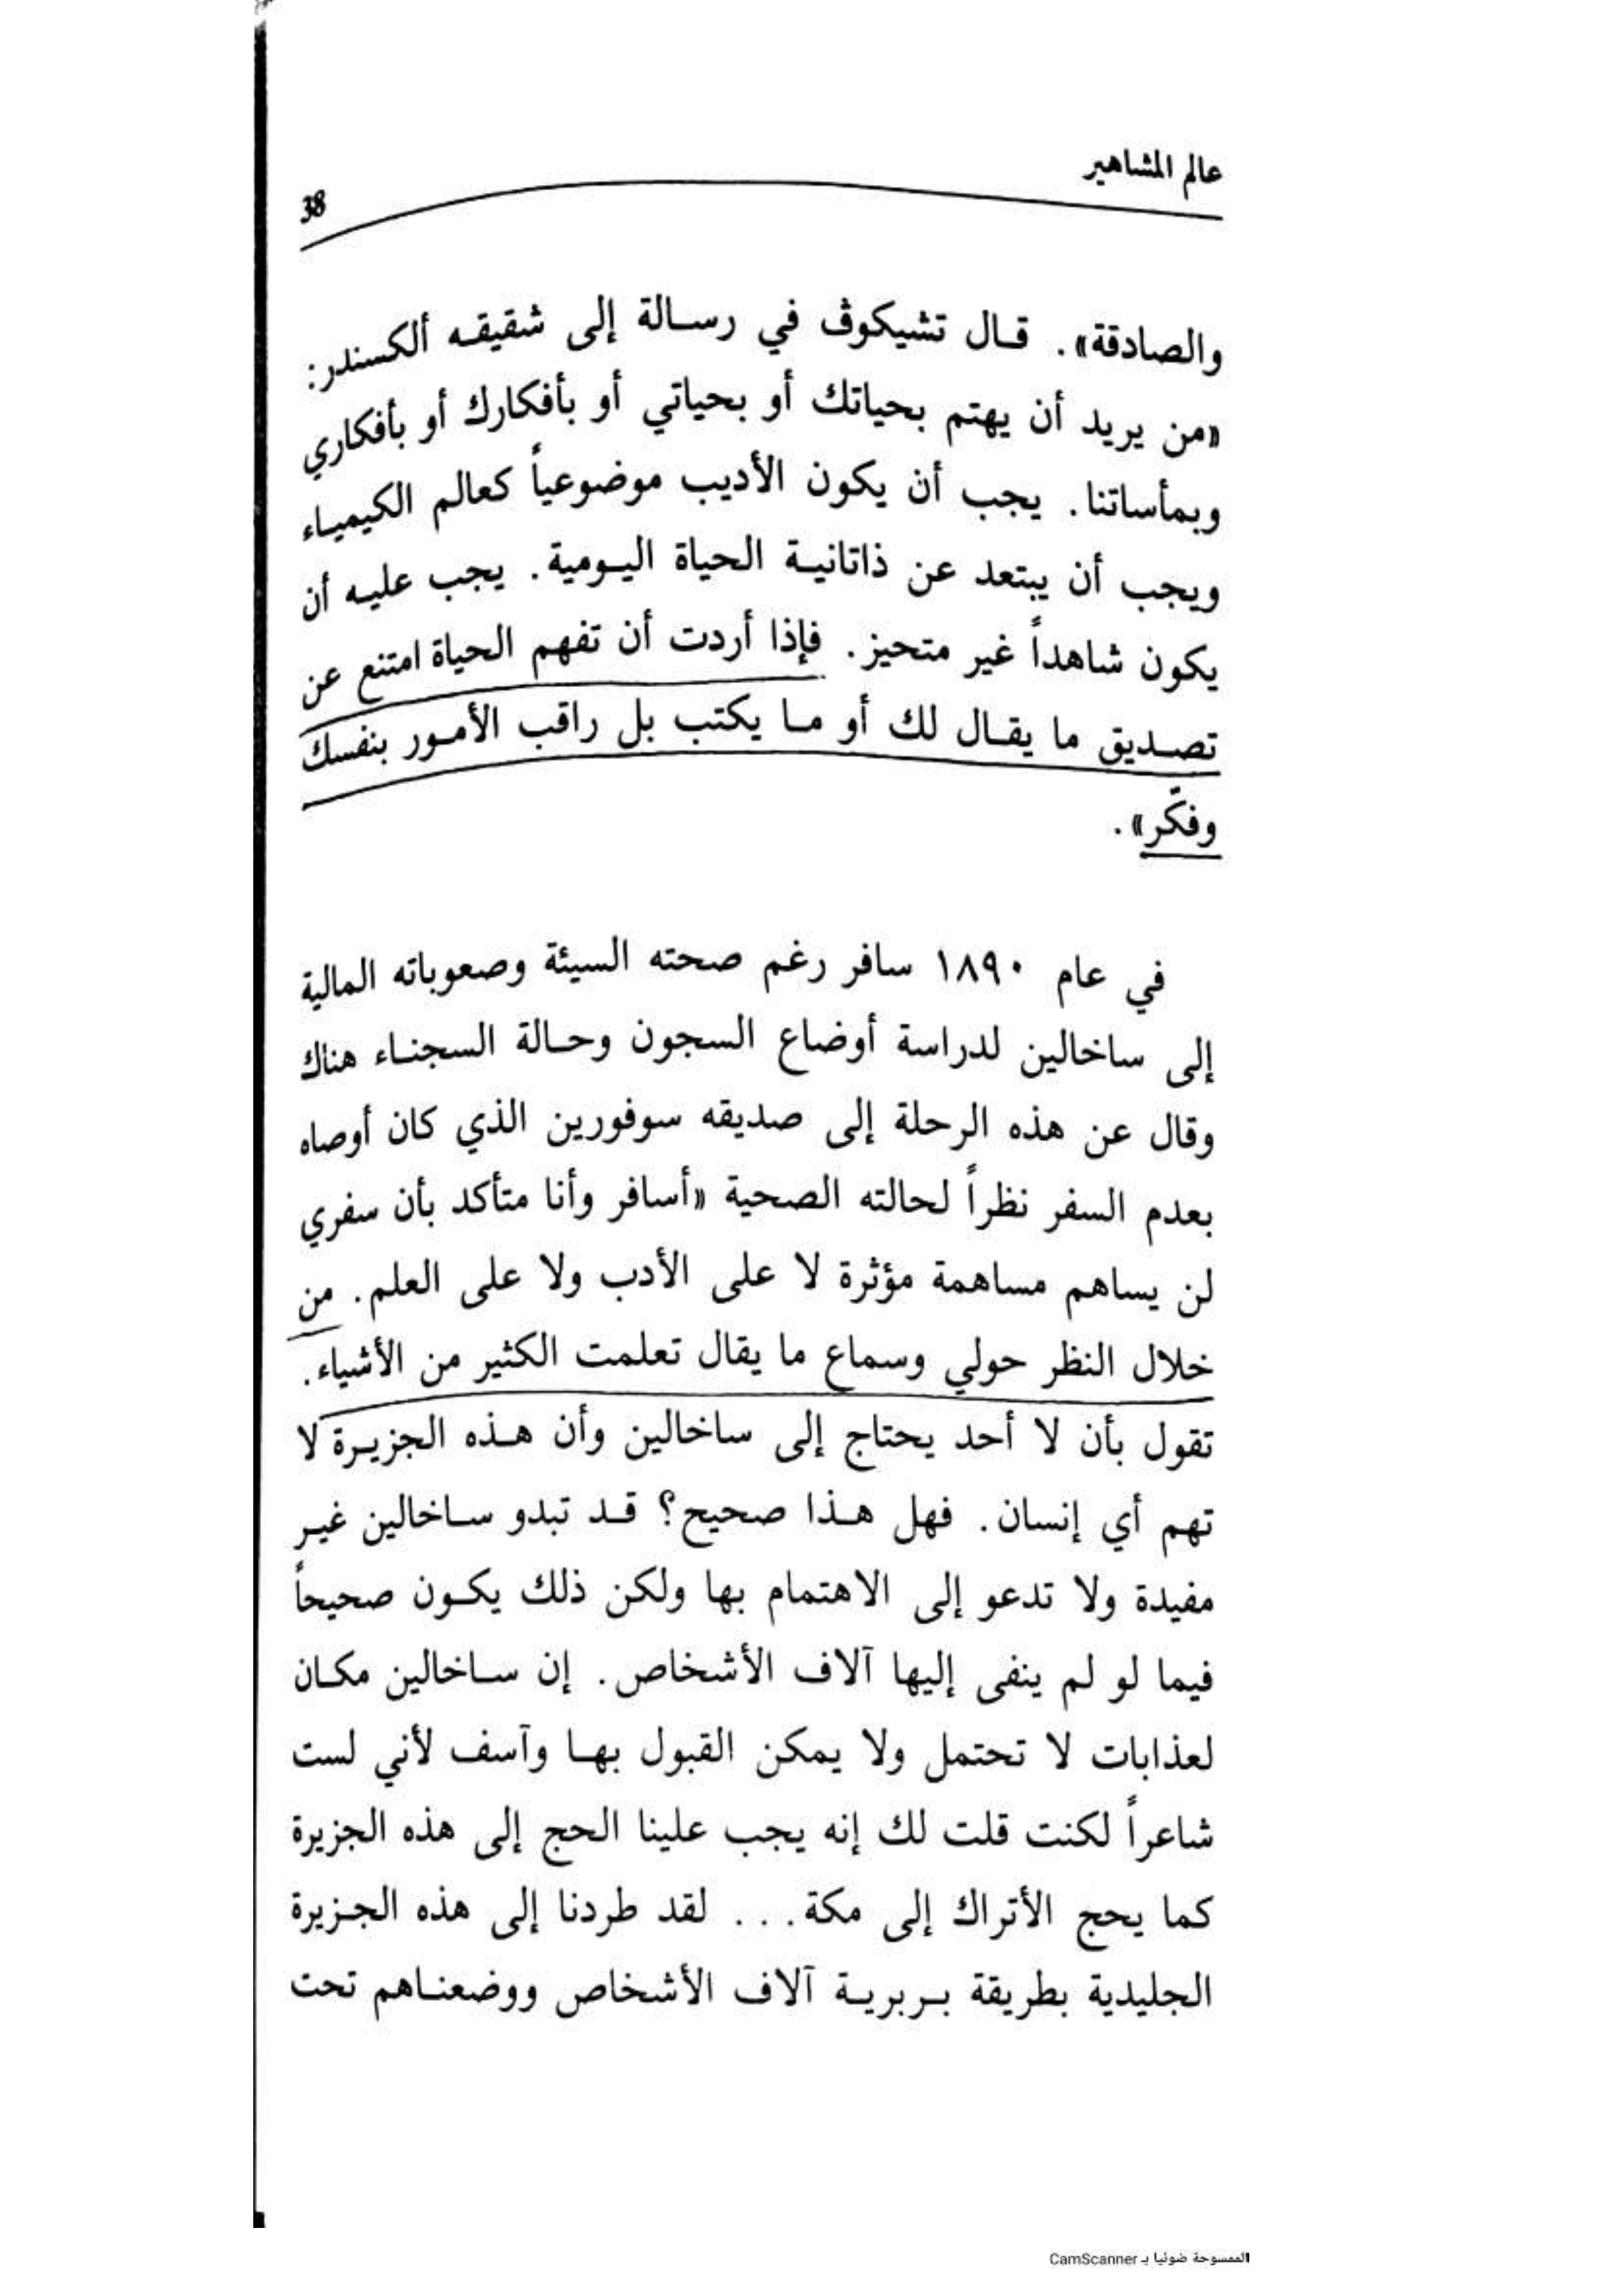 عالم المشاهير
38
والصادقة». قال تشيكوڤ في رسالة إلى شقيقه ألكسندر:
«من يريد أن يهتم بحياتك أو بحياتي أو بأفكارك أو بأفكاري
وبمأساتنا. يجب أن يكون الأديب موضوعياً كعالم الكيمياء
ويجب أن يبتعد عن ذاتانية الحياة اليومية. يجب عليه أن
يكون شاهداً غير متحيز. فإذا أردت أن تفهم الحياة امتنع عن
تصديق ما يقال لك أو ما يكتب بل راقب الأمور بنفسك
وفكّر».
في عام ١٨٩٠ سافر رغم صحته السيئة وصعوباته المالية
إلى ساخالين لدراسة أوضاع السجون وحالة السجناء هناك
وقال عن هذه الرحلة إلى صديقه سوفورين الذي كان أوصاه
بعدم السفر نظراً لحالته الصحية «أسافر وأنا متأكد بأن سفري
لن يساهم مساهمة مؤثرة لا على الأدب ولا على العلم. من
خلال النظر حولي وسماع ما يقال تعلمت الكثير من الأشياء.
تقول بأن لا أحد يحتاج إلى ساخالين وأن هذه الجزيرة لا
تهم أي إنسان. فهل هذا صحيح؟ قد تبدو ساخالين غير
مفيدة ولا تدعو إلى الاهتمام بها ولكن ذلك يكون صحيحاً
فيما لو لم ينفى إليها آلاف الأشخاص. إن ساخالين مكان
لعذابات لا تحتمل ولا يمكن القبول بها وآسف لأني لست
شاعراً لكنت قلت لك إنه يجب علينا الحج إلى هذه الجزيرة
كما يحج الأتراك إلى مكة... لقد طردنا إلى هذه الجزيرة
الجليدية بطريقة بربرية آلاف الأشخاص ووضعناهم تحت
الممسوحة ضوئيا بـ CamScanner